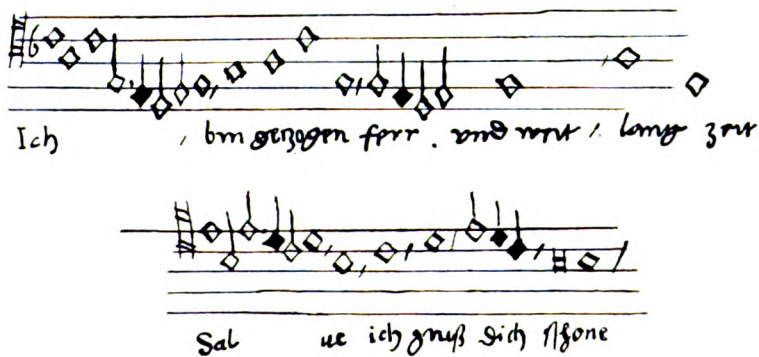 Ich , bin gezogen ferr . und weit , lang zeit
Sal ue ich gruß dich schone